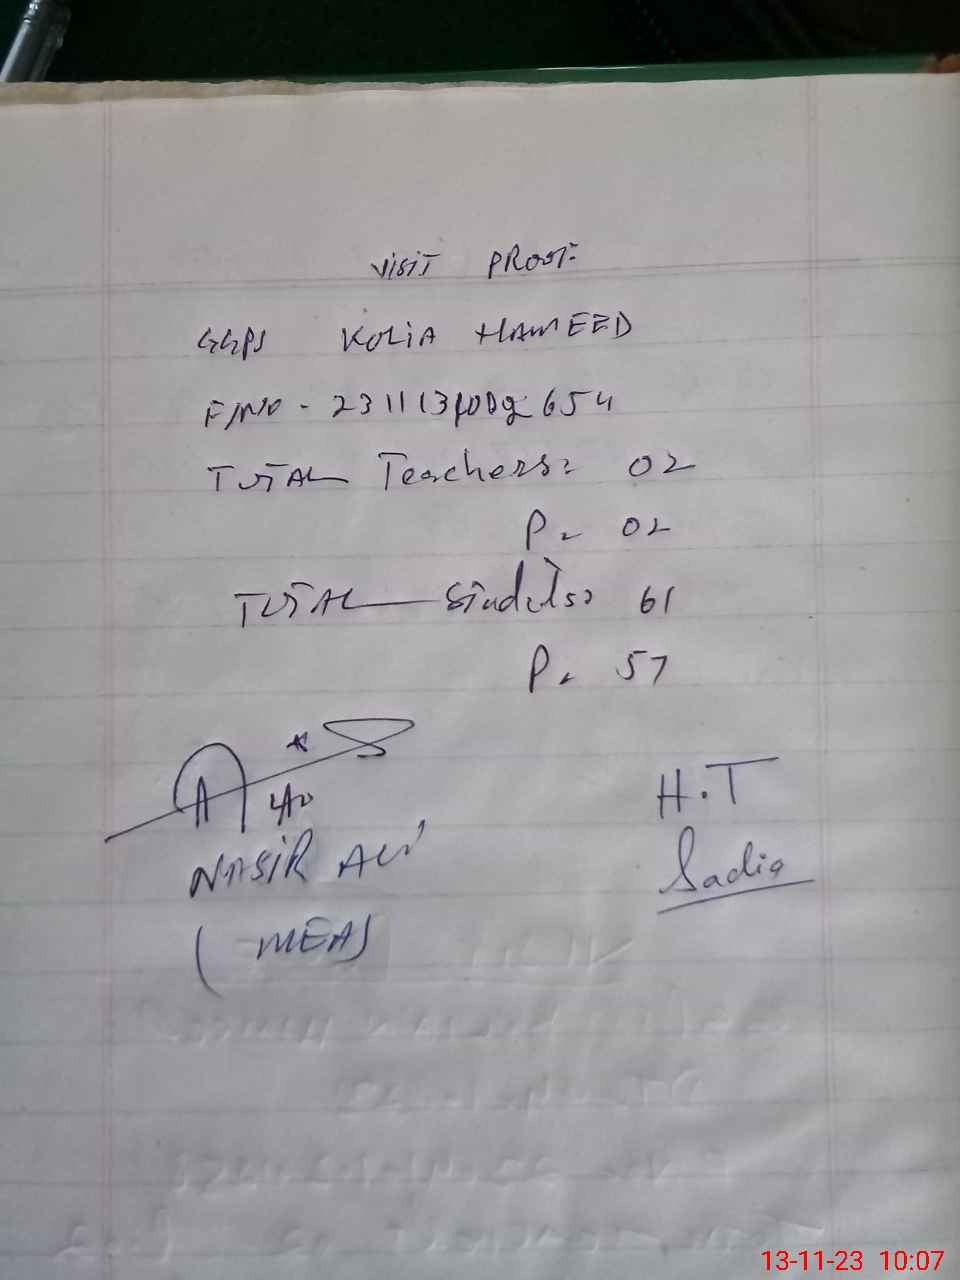 VISIT PROOF
GGPS KOLIA HAMEED
TOTAL Teachers: 02
P. 02
TOTAL Students: 61
P. 57
H.T
NASIR ALI
Sadia
(MEA)
13-11-23 10:07